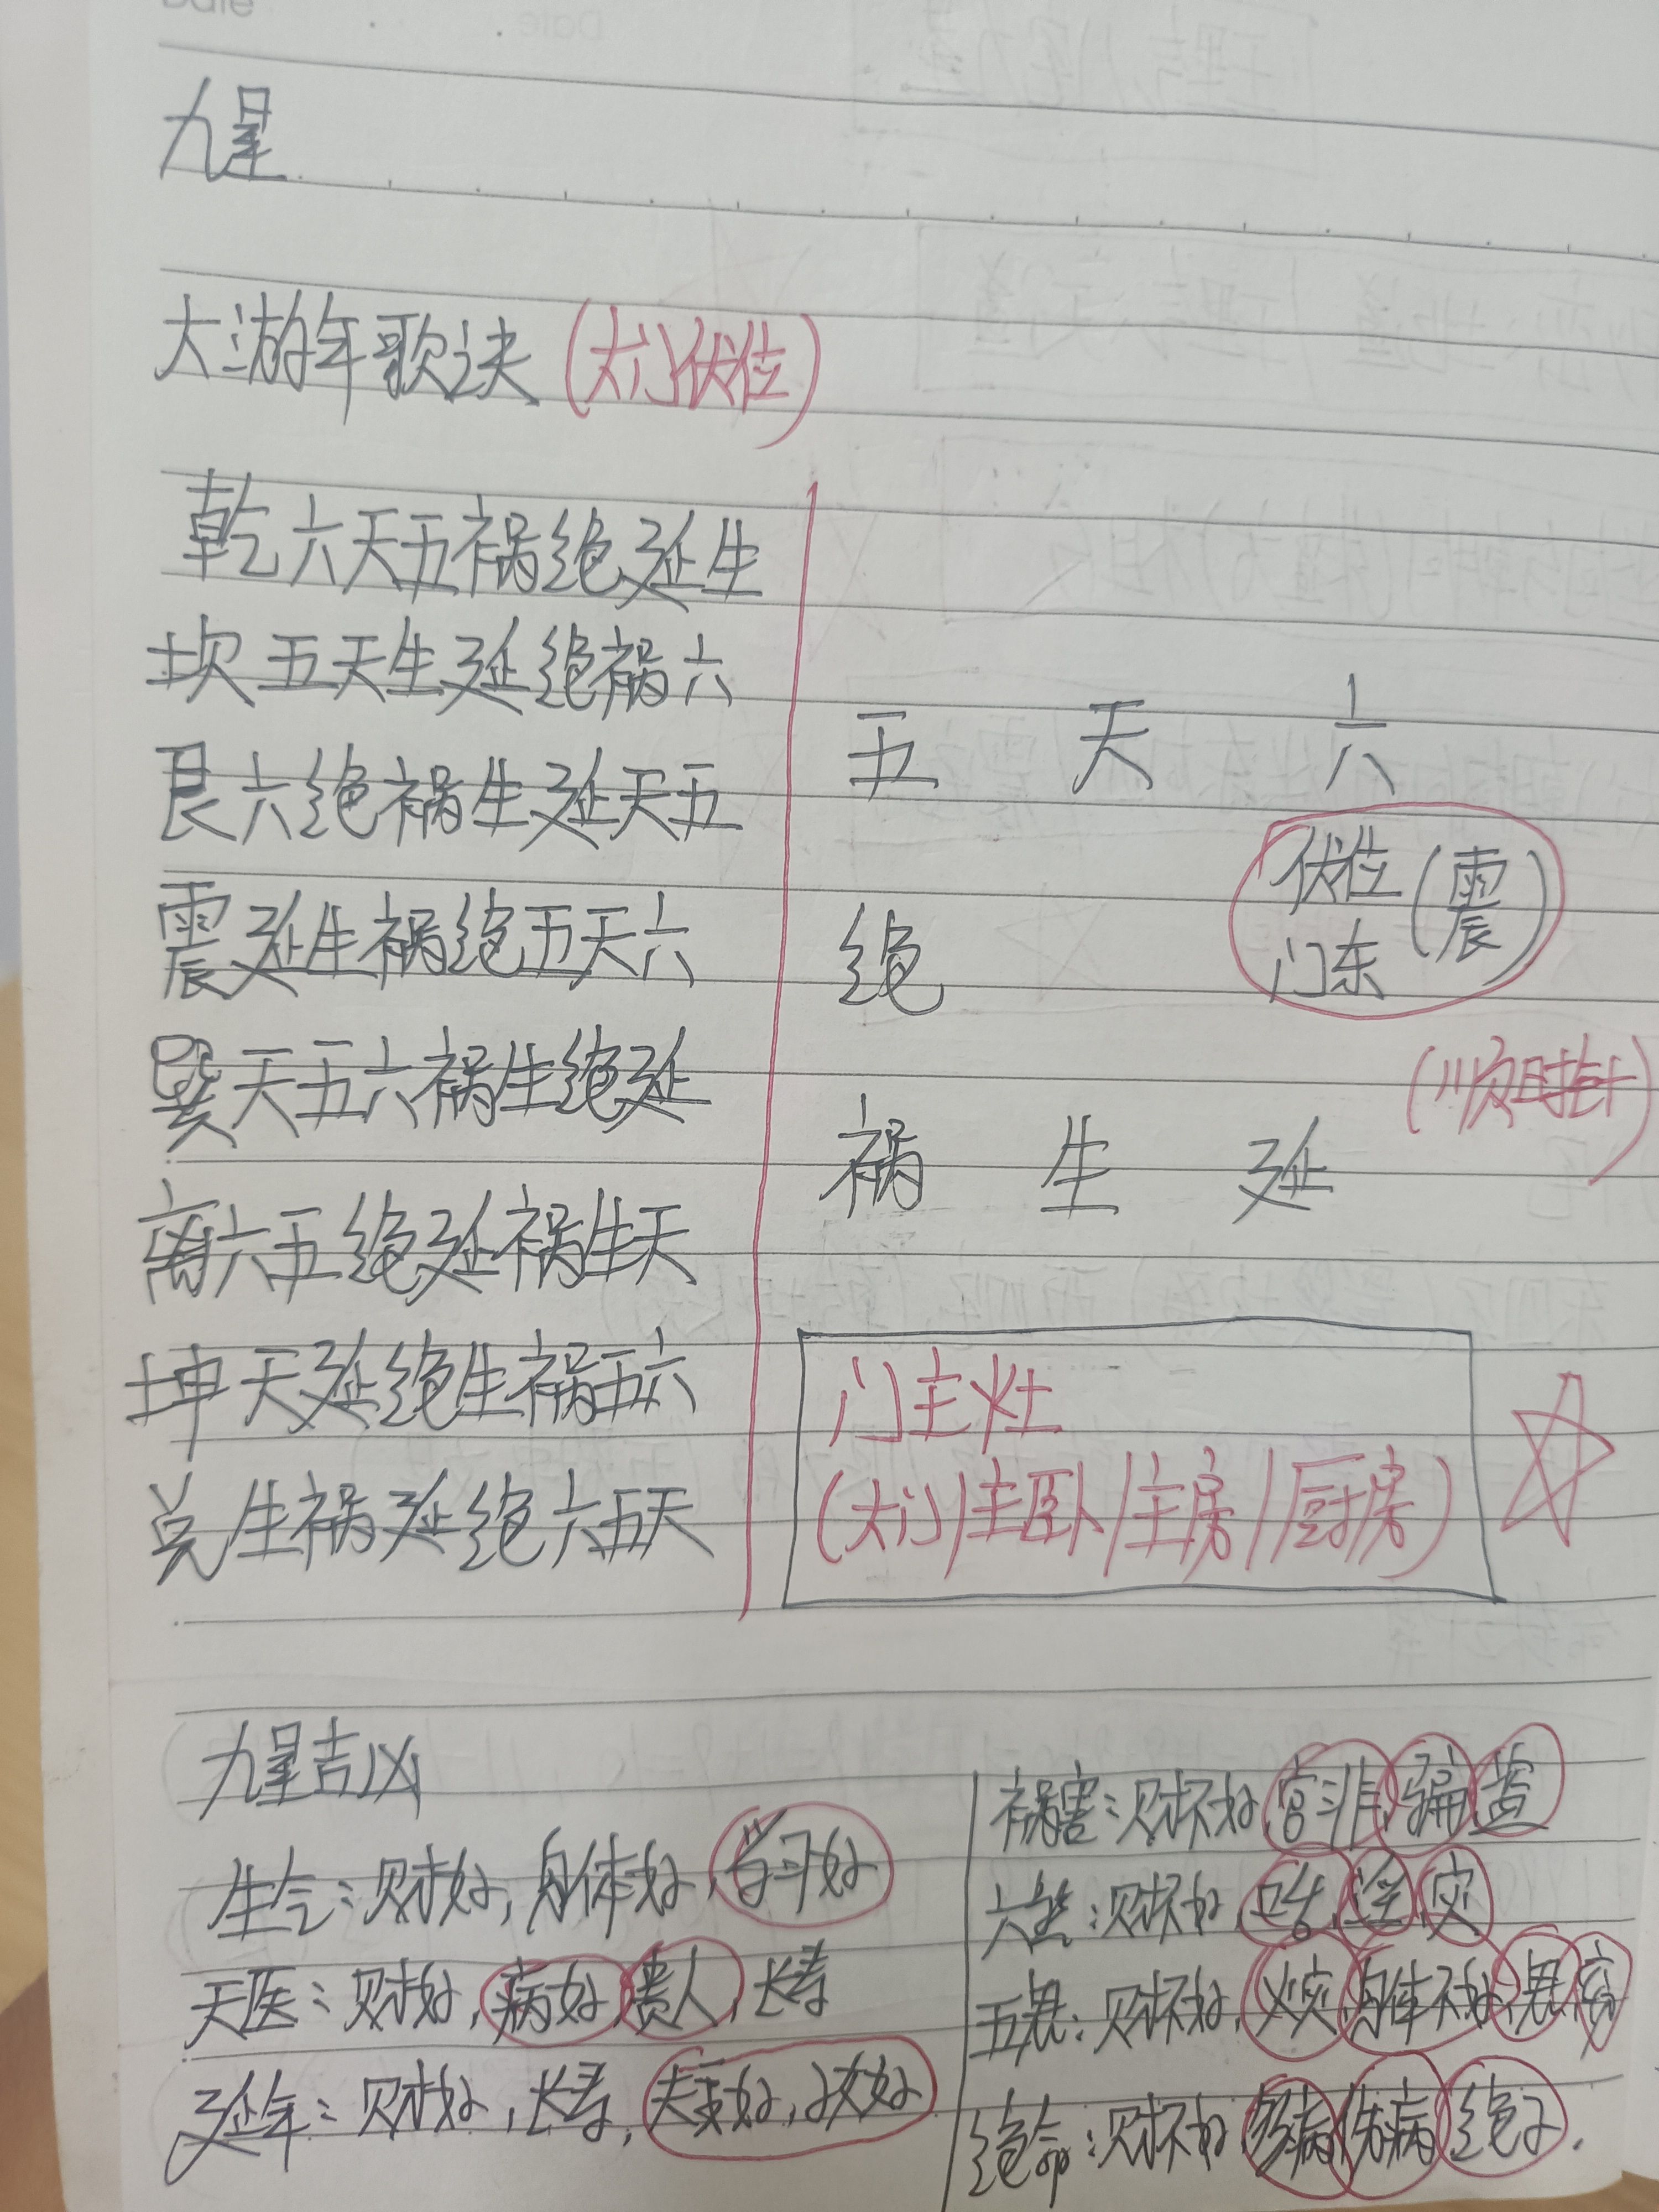 Date
九星
大游年歌诀(大门伏位)
乾六天五祸绝延生
坎五天生延绝祸六
艮六绝祸生延天五
震延生祸绝五天六
巽天五六祸生绝延
离六五绝延祸生天
坤天延绝生祸五六
兑生祸延绝六五天
五 天 六
绝
伏位
门东
(震)
(顺时针)
祸 生 延
门主灶
(大门/主卧/主房/厨房)
九星吉凶
生气:财好,身体好,学习好
天医:财好,病好,贵人,长寿
延年:财好,长寿,夫妻好,子女好
祸害:财不好,官非,骗,盗
六煞:财不好,口舌,淫,灾
五鬼:财不好,火灾,身体不好,鬼
绝命:财不好,病,伤病,绝子.